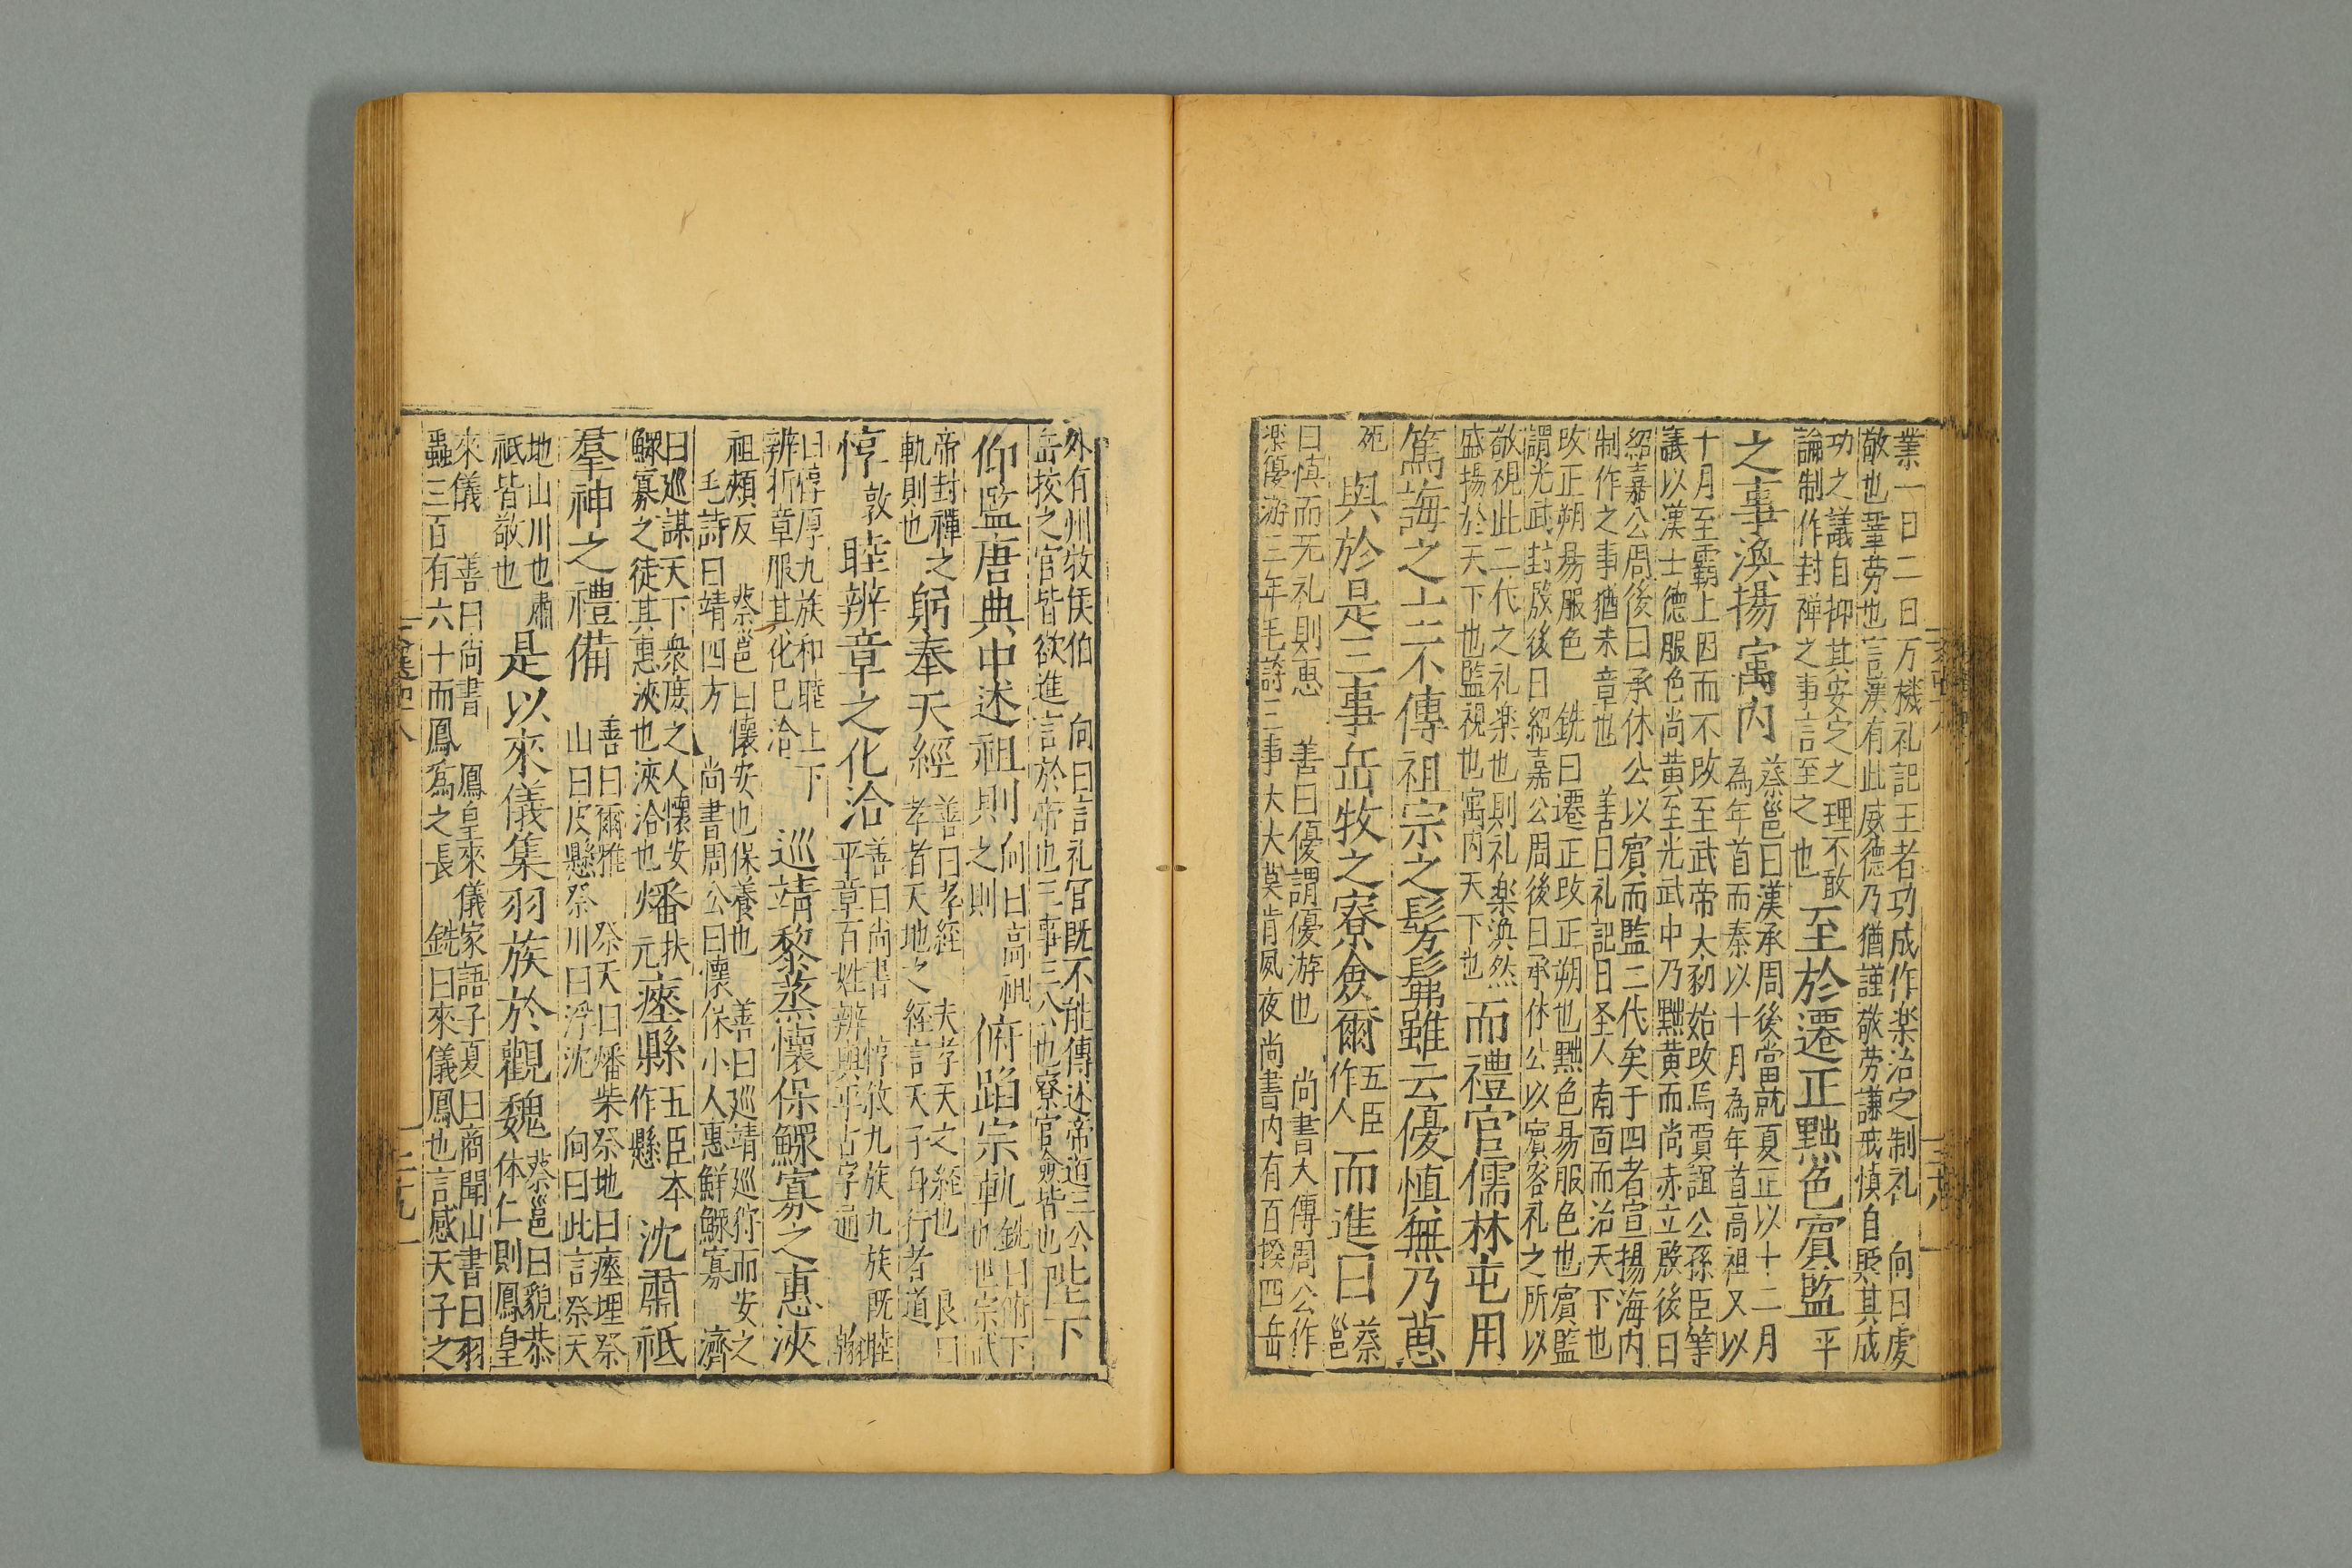 業一日二日万機礼記王者功成作楽治定制礼 向曰虔
敬也鞏労也言漢有此威德乃猶謹敬労謙戒慎自毀其成
功之議自抑其安定之理不敢
論制作封禅之事言至之也
至於遷正黜色賓監平
之事渙揚㝢内
蔡邕曰漢承周後當就夏正以十二月
為年首而秦以十月為年首高祖又以
十月至霸上因而不改至武帝太初始改焉賈誼公孫臣等
議以漢土德服色尚黄至光武中乃黜黄而尚赤立殷後曰
紹嘉公周後曰承休公以賓而監二代矣于四者宣揚海内
制作之事猶未章也 善曰礼記曰圣人南面而治天下也
改正朔易服色 銑曰遷正改正朔也黜色易服色也賓監
謂光武封殷後曰紹嘉公周後曰承休公以賓客礼之所以
敬視此二代之礼楽也則礼楽渙然
盛揚於天下也監視也㝢内天下也
而禮官儒林屯用
篤誨之士不傳祖宗之髣髴雖云優慎無乃葸
死
與於是三事岳牧之寮僉爾
五臣
作人
而進曰
蔡
邕
曰慎而无礼則葸 善曰優謂優游也 尚書大傳周公作
楽優游三年毛詩三事大夫莫肯夙夜尚書内有百揆四岳
外有州牧侯伯 向曰言礼官既不能傳述帝道三公
岳牧之官皆欲進言於帝也三事三公也寮官僉皆也
陛下
仰監唐典中述祖則
向曰高祖
則之則
俯蹈宗軌
銑曰俯下
也世宗武
帝封禪之
軌則也
躬奉天經
善曰孝經 夫孝天之經也 良曰
孝者天地之經言天子身行者道
惇
敦
睦辨章之化洽
善曰尚書 惇敘九族九族既睦
平章百姓辨與平古字通 翰
曰惇厚九族和睦上下
辨析章服其化已洽
巡靖黎蒸懷保鰥寡之惠浹
蔡邕曰懷安也保養也 善曰巡靖巡狩而安之
祖頰反
毛詩曰靖四方 尚書周公曰懷保小人惠鮮鰥寡 濟
曰巡謀天下衆庶之人懷安
鰥寡之徒其惠浹也浹洽也
燔
扶
元
瘞縣
五臣本
作懸
沈肅祗
羣神之禮備
善曰爾雅 祭天曰燔柴祭地曰瘞埋祭
山曰庋懸祭川曰浮沈 向曰此言祭天
地山川也肅
祗皆敬也
是以來儀集羽族於觀魏
蔡邕曰貌恭
体仁則鳳皇
來儀 善曰尚書 鳳皇來儀家語子夏曰商聞山書曰羽
蟲三百有六十而鳳為之長 銑曰來儀鳳也言感天子之